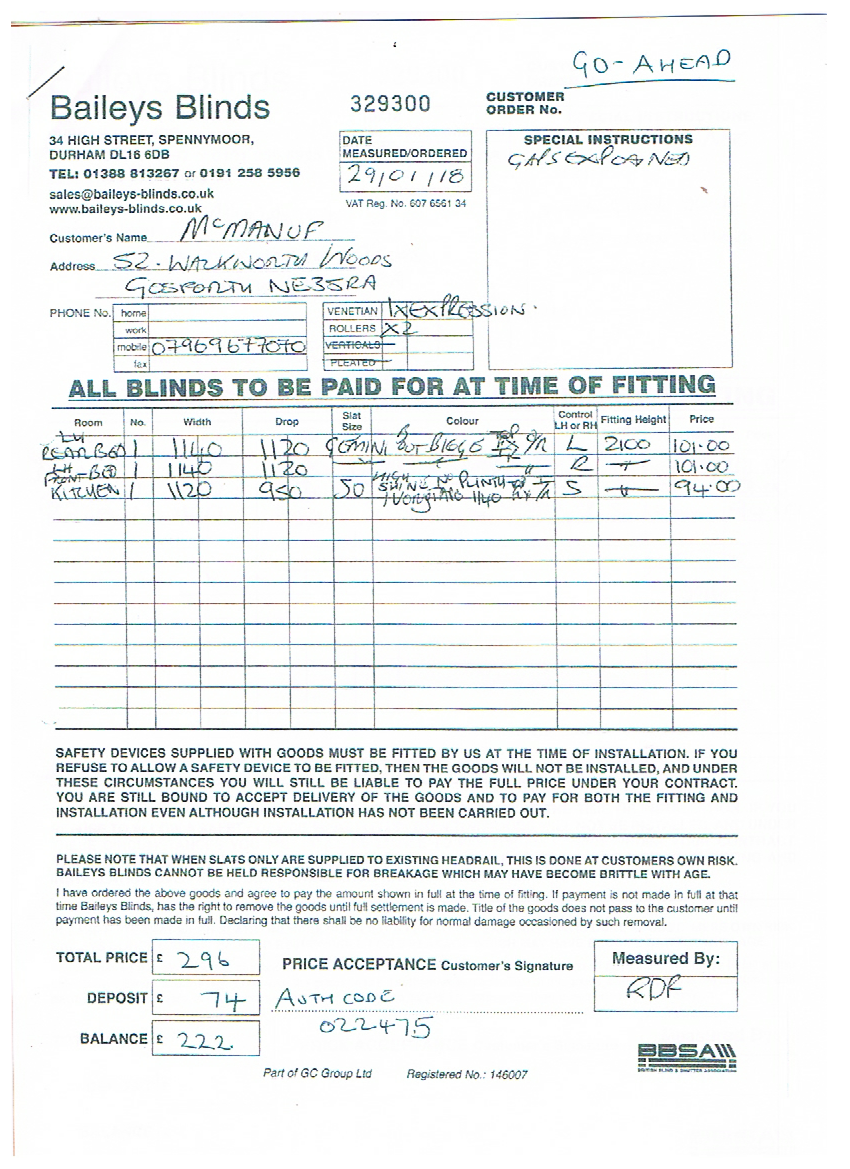 GO-AHEAD
Baileys Blinds
329300
CUSTOMER
ORDER No.
34 HIGH STREET, SPENNYMOOR,
DURHAM DL16 6DB
TEL: 01388 813267 or 0191 258 5956
sales@baileys-blinds.co.uk
www.baileys-blinds.co.uk
DATE
MEASURED/ORDERED
29/01/18
VAT Reg. No. 607 6561 34
SPECIAL INSTRUCTIONS
Customer's Name McMANUF
Address 52 - WARKWORTH WOODS
GOSFORTH NE35RA
PHONE No. home
work
mobile 07969677070
fax
VENETIAN 1XEXPRESSION
ROLLERS X2
VERTICALS
PLEATED
ALL BLINDS TO BE PAID FOR AT TIME OF FITTING
Room No. Width Drop Slat Size Colour Control LH or RH Fitting Height Price
REAR BED 1 1140 1120 GEMINI L 2100 101.00
FRONT-BED 1 1140 1120 R 101.00
KITCHEN 1 1120 950 50 HIGH SHINE NO PLINTH S 94.00
SAFETY DEVICES SUPPLIED WITH GOODS MUST BE FITTED BY US AT THE TIME OF INSTALLATION. IF YOU
REFUSE TO ALLOW A SAFETY DEVICE TO BE FITTED, THEN THE GOODS WILL NOT BE INSTALLED, AND UNDER
THESE CIRCUMSTANCES YOU WILL STILL BE LIABLE TO PAY THE FULL PRICE UNDER YOUR CONTRACT.
YOU ARE STILL BOUND TO ACCEPT DELIVERY OF THE GOODS AND TO PAY FOR BOTH THE FITTING AND
INSTALLATION EVEN ALTHOUGH INSTALLATION HAS NOT BEEN CARRIED OUT.
PLEASE NOTE THAT WHEN SLATS ONLY ARE SUPPLIED TO EXISTING HEADRAIL, THIS IS DONE AT CUSTOMERS OWN RISK.
BAILEYS BLINDS CANNOT BE HELD RESPONSIBLE FOR BREAKAGE WHICH MAY HAVE BECOME BRITTLE WITH AGE.
I have ordered the above goods and agree to pay the amount shown in full at the time of fitting. If payment is not made in full at that
time Baileys Blinds, has the right to remove the goods until full settlement is made. Title of the goods does not pass to the customer until
payment has been made in full. Declaring that there shall be no liability for normal damage occasioned by such removal.
TOTAL PRICE £ 296
PRICE ACCEPTANCE Customer's Signature
Measured By:
RDF
DEPOSIT £ 74
AUTH CODE
022475
BALANCE £ 222
BBSA
BRITISH BLIND & SHUTTER ASSOCIATION
Part of GC Group Ltd Registered No.: 146007